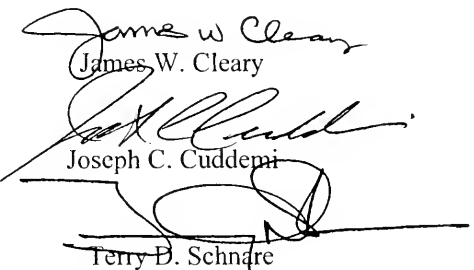 James W Cleary
James W. Cleary
Joseph C. Cuddemi
Terry D. Schnare